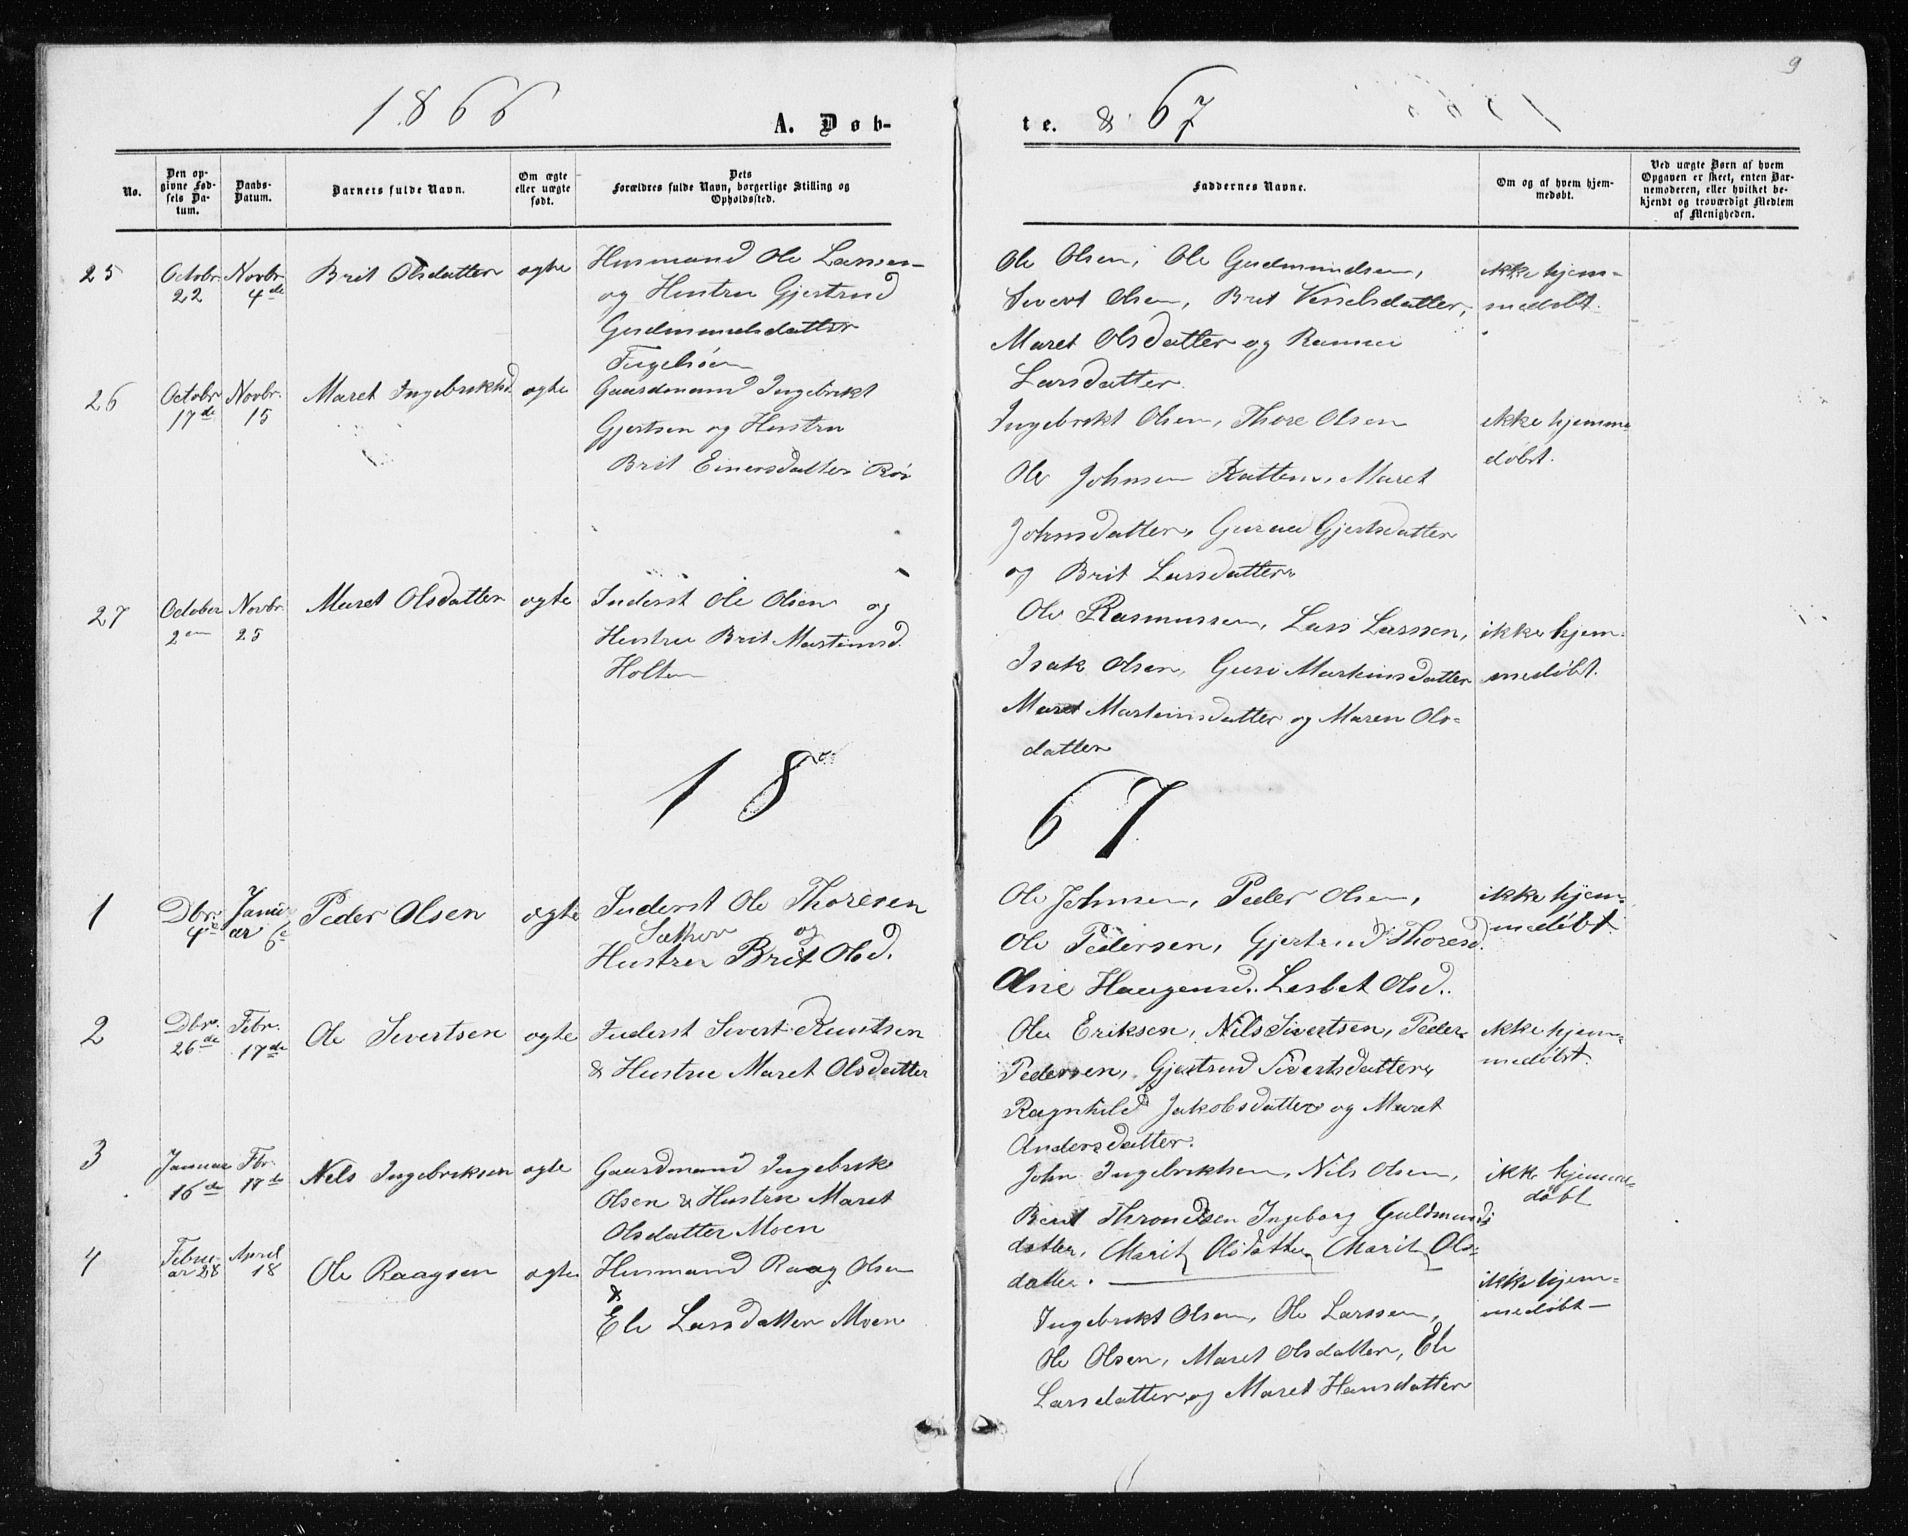 9
1866
A. Døb-
te. & 67
No.
Den op-
givne Fød-
sels Da-
tum.
Daabs-
Datum.
Barnets fulde Navn.
Om ægte
eller uægte
født.
Dets
Forældres fulde Navn, borgerlige Stilling og
Opholdssted.
Faddernes Navne.
Om og af hvem hjem-
medøbt.
Ved uægte Børn af hvem
Opgaven er skeet, enten Bar-
nemoderen, eller hvilket be-
kjendt og troværdigt Medlem
af Menigheden.
25
Octobr
22
Novbr.
4de
Brit Olsdatter
ægte
Husmand Ole Larsen
og Hustru Gjertrud
Gudmundsdatter
Ole Olsen, Ole Gudmundsen,
Sivert Olsen, Brit Vesselsdatter,
Maret Olsdatter og
Larsdatter.
ikke hjem-
medøbt.
26
Octobr
17de
Novbr.
15
Maret Ingebriktsd.
ægte
Gaardmand Ingebrikt
Gjertsen og Hustru
Brit Einersdatter Røe
Ingebrikt Olsen, Thore Olsen
Ole Johnsen Kattem, Maret
Johnsdatter, Guru Gjertsdatter
og Brit Larsdatter
ikke hjemme-
døbt.
27
October
2en
Novbr.
25
Maret Olsdatter
ægte
Inderst Ole Olsen og
Hustru Brit Martinsd.
Holten
Ole Rasmussen, Lars Larssen,
Isak Olsen, Guri Martinsdatter
Maret Martinsdatter og Maren Ols-
datter
ikke hjem-
medøbt.
18
67
1
Dbr.
4de
Janu-
ar 6e
Peder Olsen
ægte
Inderst Ole Thoresen
Sæther og
Hustru Brit Olsd.
Ole Johnsen, Peder Olsen,
Ole Pedersen, Gjertrud Thoresd.
Ane Haagensd. Lesbet Olsd.
ikke hjem-
medøbt.
2
Dbr.
26de
Febr.
17de
Ole Sivertsen
ægte
Inderst Sivert Knutsen
& Hustru Maret Olsdatter
Ole Eriksen, Nils Sivertsen, Peder
Pedersen, Gjertrud Sivertsdatter,
Ragnhild Jakobsdatter og Maret
Andersdatter.
ikke hjem-
medøbt.
3
Januar
16de
Fbr.
17de
Nils Ingebriksen
ægte
Gaardmand Ingebrik
Olsen & Hustru Maret
Olsdatter Moen
John Ingebriktsen, Nils Olsen,
Berit Throndsen Ingeborg Guldmunds
datter, Marit Olsdatter, Marit Ols-
datter.
ikke hjemme-
døbt
4
Febru-
ar 28
April
18
Ole Raagsen
ægte
Husmand Raag Olsen
&
Eli Larsdatter Moen
Ingebrikt Olsen, Ole Larssen,
Ole Olsen, Maret Olsdatter, Eli
Larsdatter og Maret Hansdatter
ikke hjem-
medøbt